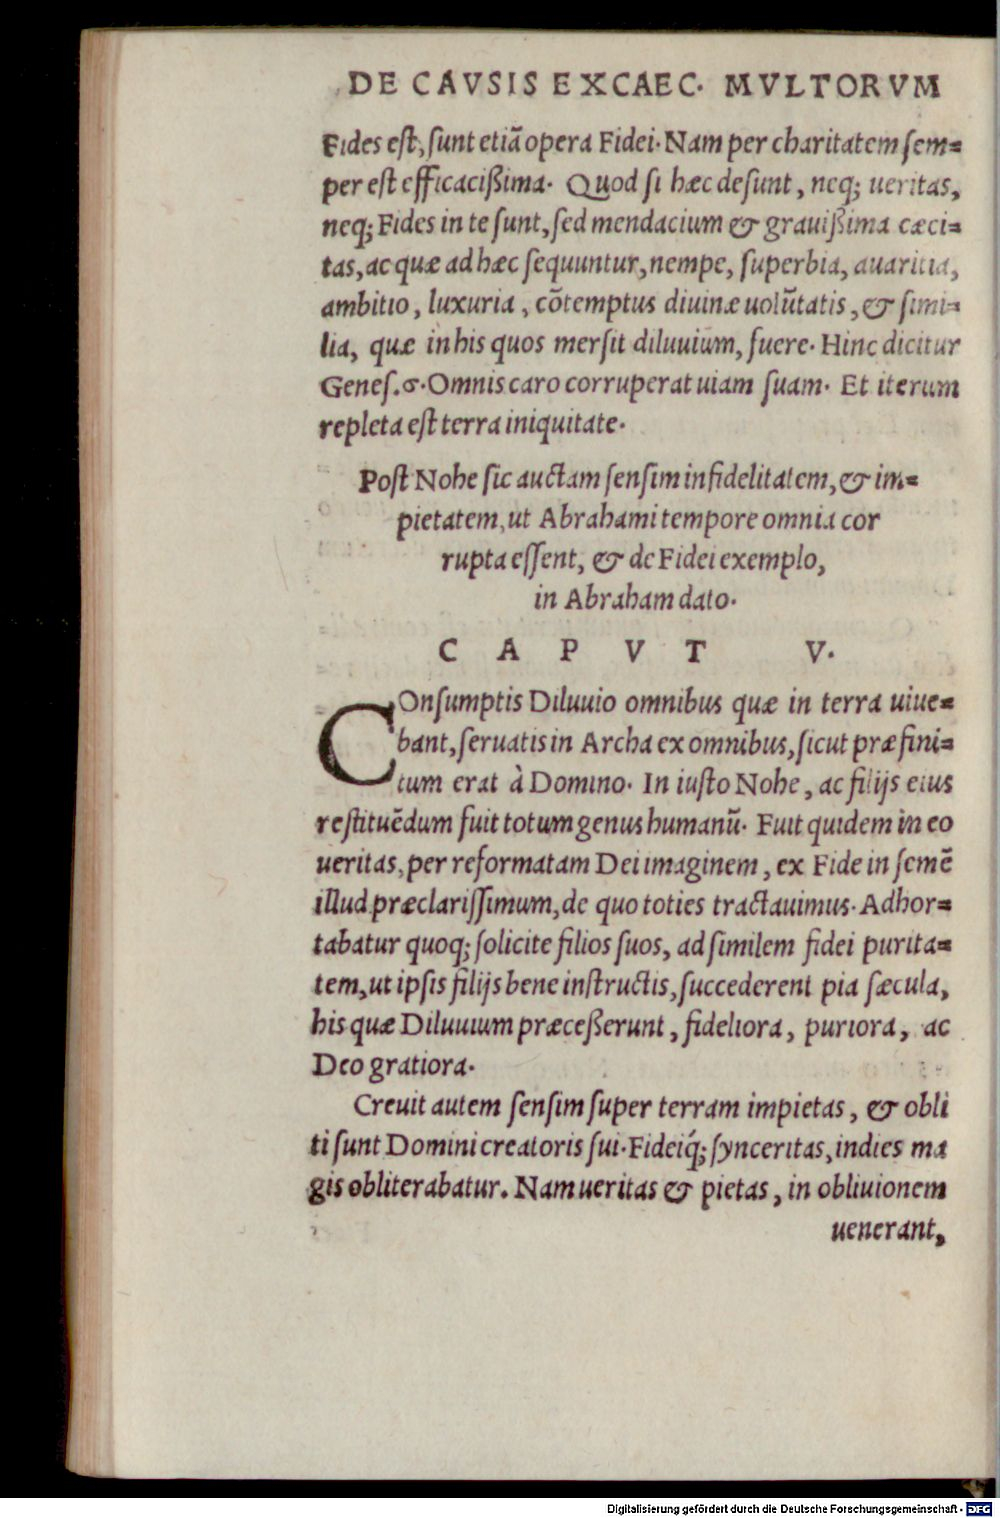 DE CAVSIS EXCAEC. MVLTORVM
Fides est, sunt etiã opera Fidei. Nam per charitatem sem=
per est efficacißima. Quod si hæc desunt, neq; ueritas,
neq; Fides in te sunt, sed mendacium & grauißima cæci=
tas, ac quæ ad hæc sequuntur, nempe, superbia, auaritia,
ambitio, luxuria, cõtemptus diuinæ uolũtatis, & simi=
lia, quæ in his quos mersit diluuium, fuere. Hinc dicitur
Genes. 6. Omnis caro corruperat uiam suam. Et iterum
repleta est terra iniquitate.
Post Nohe sic auctam sensim infidelitatem, & im=
pietatem, ut Abrahami tempore omnia cor
rupta essent, & de Fidei exemplo,
in Abraham dato.
CAPVT V.
COnsumptis Diluuio omnibus quæ in terra uiue=
bant, seruatis in Archa ex omnibus, sicut præfini=
tum erat à Domino. In iusto Nohe, ac filijs eius
restituẽdum fuit totum genus humanũ. Fuit quidem in eo
ueritas, per reformatam Dei imaginem, ex Fide in semẽ
illud præclarissimum, de quo toties tractauimus. Adhor=
tabatur quoq; solicite filios suos, ad similem fidei purita=
tem, ut ipsis filijs bene instructis, succederent pia sæcula,
his quæ Diluuium præceßerunt, fideliora, puriora, ac
Deo gratiora.
Creuit autem sensim super terram impietas, & obli
ti sunt Domini creatoris sui. Fideiq́; synceritas, indies ma
gis obliterabatur. Nam ueritas & pietas, in obliuionem
uenerant,
Digitalisierung gefördert durch die Deutsche Forschungsgemeinschaft - DFG